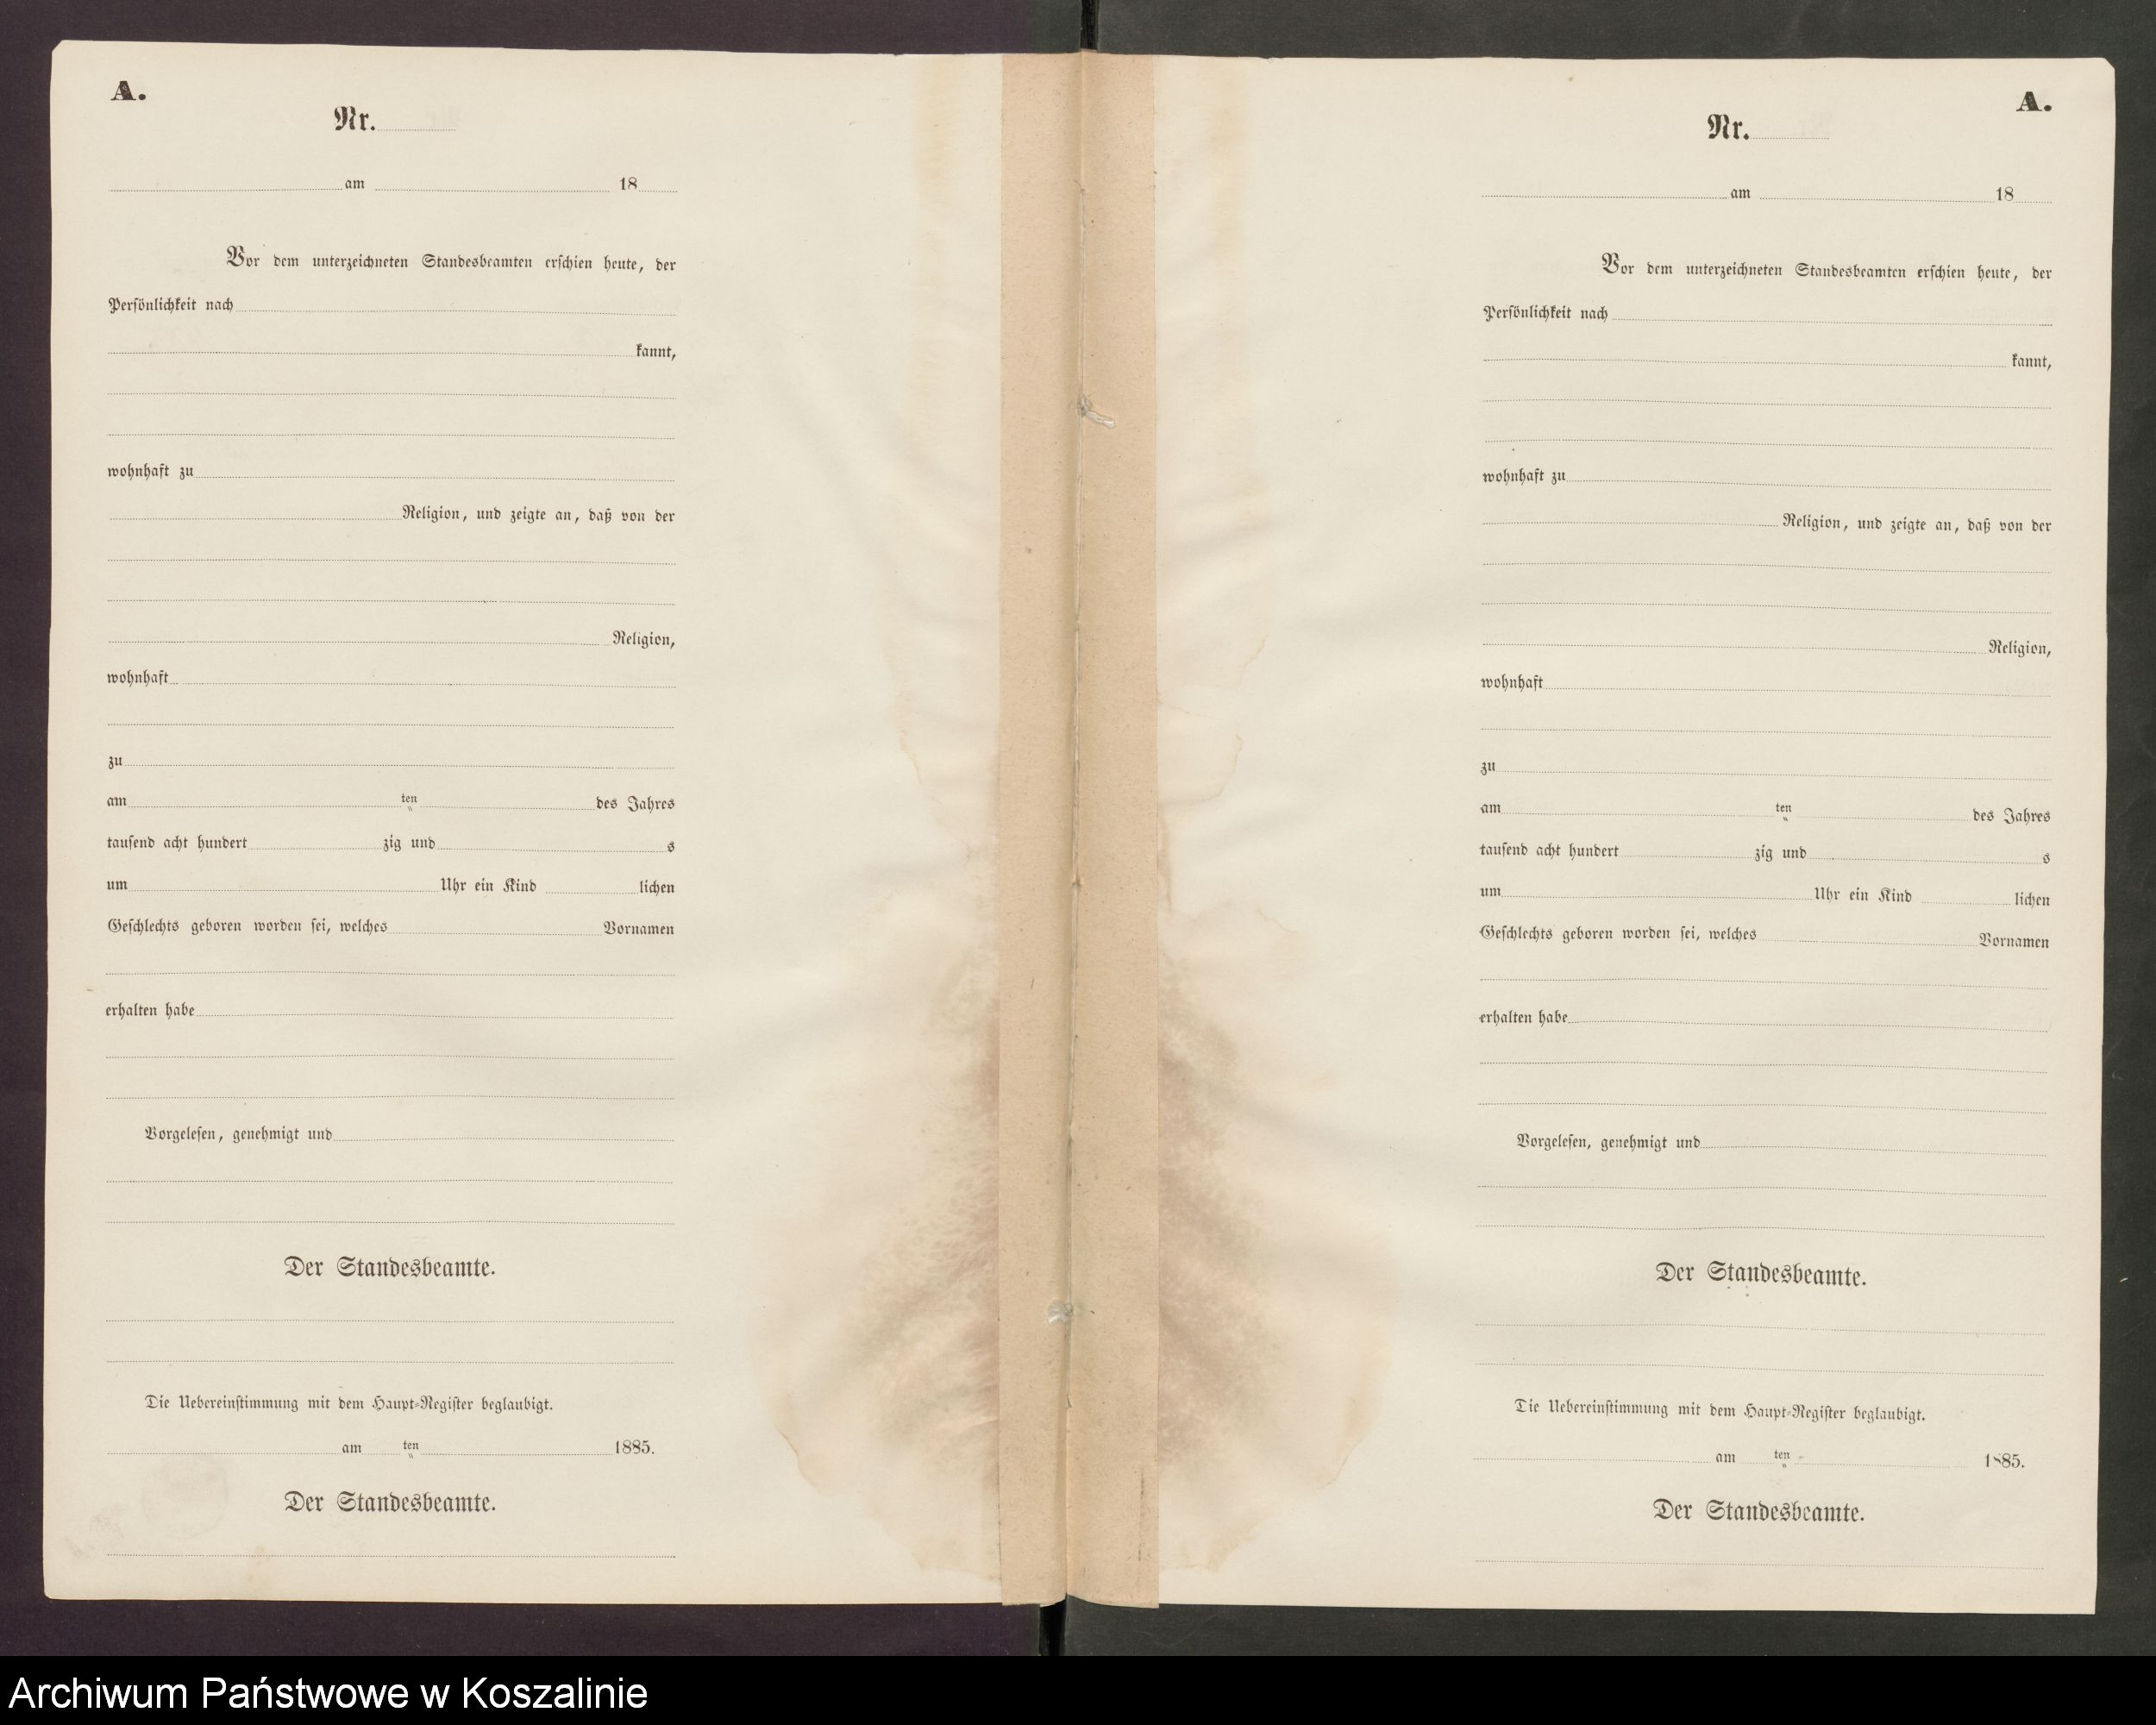 A.
Nr.
am 18
Vor dem unterzeichneten Standesbeamten erschien heute, der
Persönlichkeit nach
kannt,
wohnhaft zu
Religion, und zeigte an, daß von der
Religion,
wohnhaft
zu
am ten des Jahres
tausend acht hundert zig und s
um Uhr ein Kind lichen
Geschlechts geboren worden sei, welches Vornamen
erhalten habe
Vorgelesen, genehmigt und
Der Standesbeamte.
Die Uebereinstimmung mit dem Haupt-Register beglaubigt.
am ten 1885.
Der Standesbeamte.
A.
Nr.
am 18
Vor dem unterzeichneten Standesbeamten erschien heute, der
Persönlichkeit nach
kannt,
wohnhaft zu
Religion, und zeigte an, daß von der
Religion,
wohnhaft
zu
am ten des Jahres
tausend acht hundert zig und s
um Uhr ein Kind lichen
Geschlechts geboren worden sei, welches Vornamen
erhalten habe
Vorgelesen, genehmigt und
Der Standesbeamte.
Die Uebereinstimmung mit dem Haupt-Register beglaubigt.
am ten 1885.
Der Standesbeamte.
Archiwum Państwowe w Koszalinie